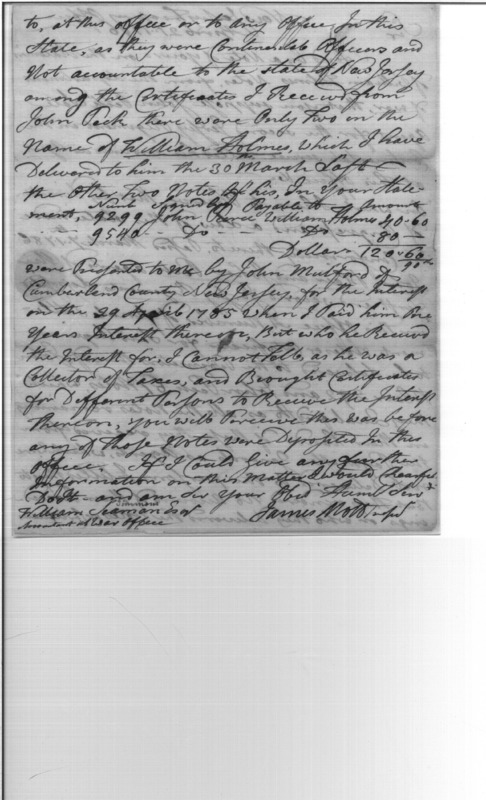 to, at this office or to any Office In this
State, as they were Continentale Officers and
Not accountable to the state of New Jersey
among the Certificates I Received from
John Peck there were Only Two in the
Name of William Holmes, which I have
Delivered to him the 30th March Last
the Other Two Notes of his, In Your State
ment, Numb Signed by Payable to Amount
9299 John Pierce William Holmes 40.60
9540 -- Do -- Do 80 --
Dollars 120.60
90
were Presented to Me by John Mulford
Cumberland County New Jersey, for the Interest
on the 29 April 1785 when I Paid him One
Years Interest thereon, But who he Received
the Interest for, I Cannot Tell, as he was a
Collector of Taxes, and Brought Certificates
for Different Persons to Receive the Interest
thereon, you will Perceive this was before
any of those Notes were Deposited In this
office. If I Could Give any further
Information on this Matter I would Chearful
Do It and am Sir Your Obed Huml Servt
William Simmons Esqr
Accountant of War Office
James Mott